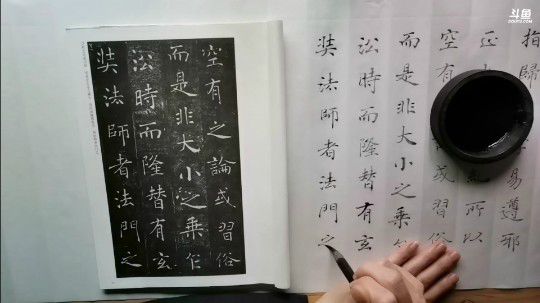 斗鱼
空有之論或習俗
而是非大小之乘乍
㳂時而隆替有玄
奘法師者法門之
指歸易遵邪
正所以
空有或習俗
而是非大小之乘
㳂時而隆替有玄
奘法師者法門之